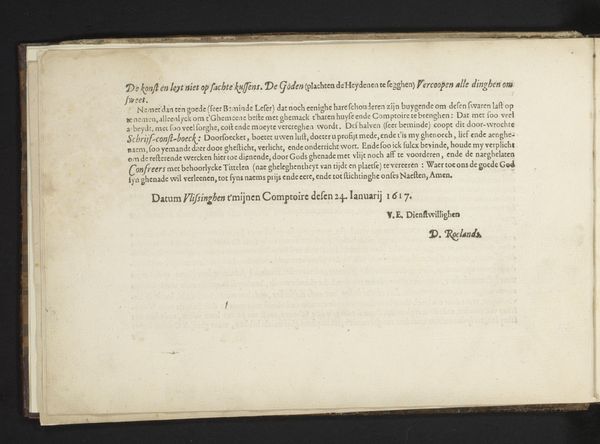 De konst en leyt niet op sachte kussens. De Goden (plachten de Heydenen te segghen) Vercoopen alle dinghen om
sweet.
Nemet dan ten goede (seer Beminde Leser) dat noch eenighe hare schouderen zijn buygende om desen swaren last op
te nemen, alleenlyck om t'Ghemeene beste met ghemack t'haren huyse ende Comptoire te brenghen: Dat met soo veel
arbeydt, met soo veel sorghe, cost ende moeyte vercreghen wordt. Des halven (seer beminde) coopt dit door-wrochte
Schrijf-const-boeck: Doorsoecket, boetet uwen lust, doeter u profijt mede, ende t'is my ghenoech, lief ende aenghe-
naem, soo yemandt daer door ghesticht, verlicht, ende onderricht wort. Ende soo ick sulcx bevinde, houde my verplicht
om de resterende wercken hier toe dienende, door Gods ghenade met vlijt noch aff te voorderen, ende de narghelaten
Confreers met behoorlycke Tittelen (nae gheleghentheyt van tijdt en plaetse) te vereeren: Waer toe ons de goede God
syn ghenade wil verleenen, tot syns naems prijs ende eere, ende tot stichtinghe onses Naesten, Amen.
Datum Vlissinghen t'mijnen Comptoire desen 24. Ianuarij 1617.
V. E. Dienstwillighen
D. Roelands.